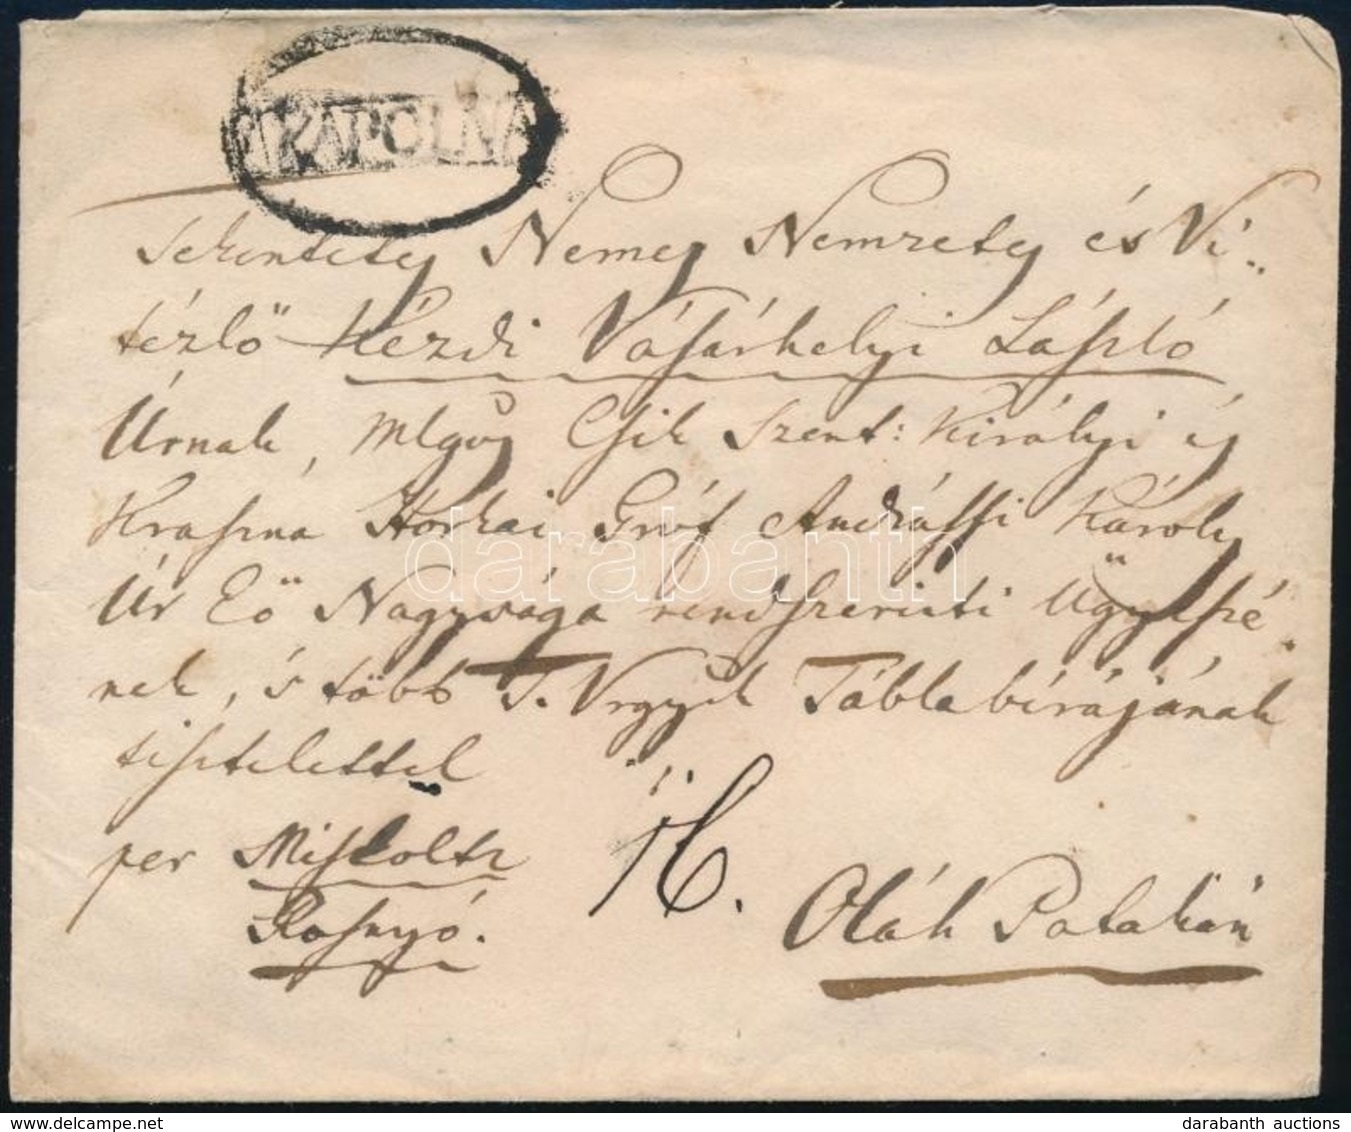 KAPOLNA
Tekintetes Nemes Nemzetes és Vi-
tézlő Kézdi Vásárhelyi László
Úrnak, Csik Szent: Királyi és
Kraszna Horkai Gróf Andrássi Károly
Úr Eő Nagysága rendszerinti Ügyészé-
nek, s több T. Vrgyék Táblabirájának
tisztelettel
per Miskoltz
Rosnyó.
16.
Oláh Patakán
darabanth
darabanth auctions